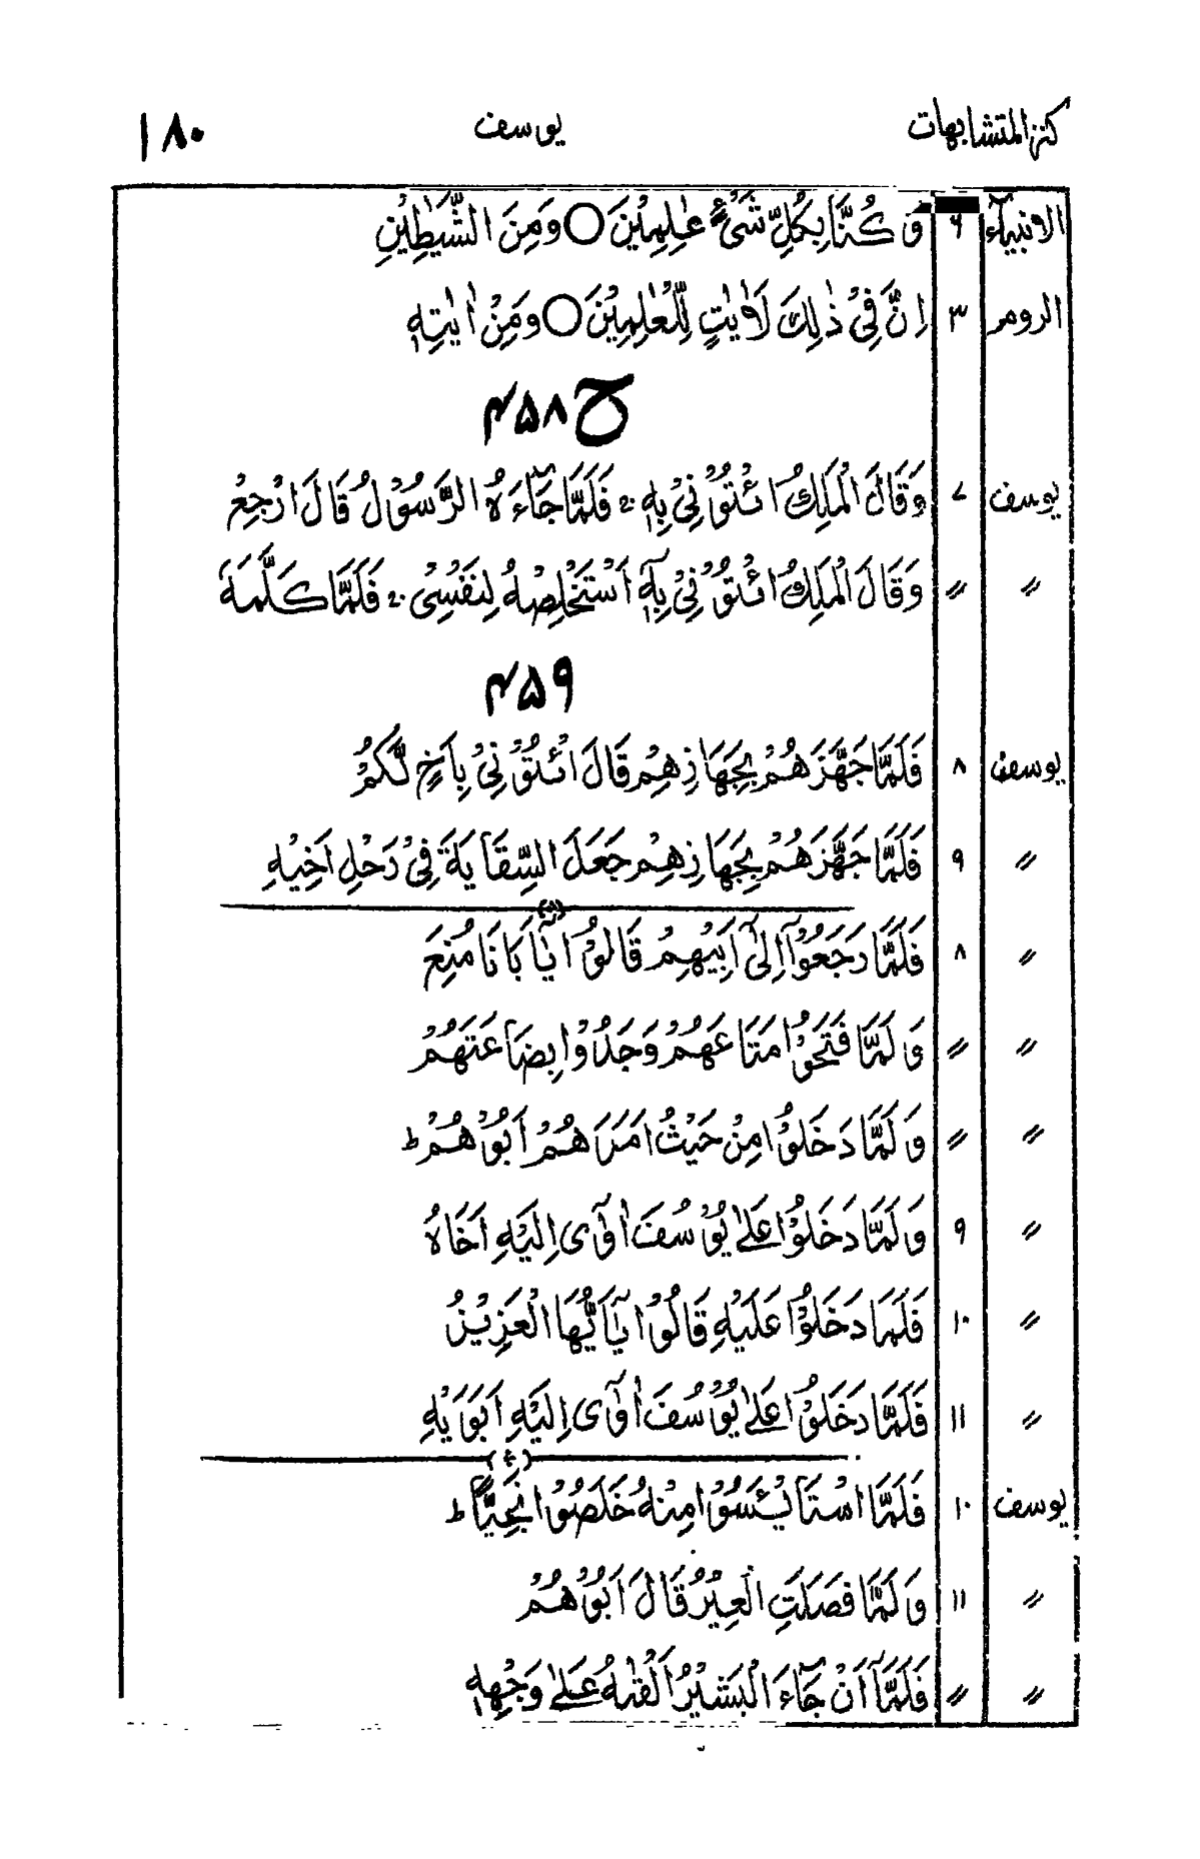 كنز المتشابهات يوسف ١٨٠
الانبياء ٦ وَكُنَّا بِكُلِّ شَيْءٍ عٰلِمِيْنَ ○ وَمِنَ الشَّيٰطِيْنِ
الروم ٣ اِنَّ فِيْ ذٰلِكَ لَاٰيٰتٍ لِّلْعٰلِمِيْنَ ○ وَمِنْ اٰيٰتِهٖ
ح ۴۵۸
يوسف ٧ وَقَالَ الْمَلِكُ ائْتُوْنِيْ بِهٖ ۚ فَلَمَّا جَآءَهُ الرَّسُوْلُ قَالَ ارْجِعْ
〃 〃 وَقَالَ الْمَلِكُ ائْتُوْنِيْ بِهٖٓ اَسْتَخْلِصْهُ لِنَفْسِيْ ۚ فَلَمَّا كَلَّمَهٗ
۴۵۹
يوسف ٨ فَلَمَّا جَهَّزَهُمْ بِجَهَازِهِمْ قَالَ ائْتُوْنِيْ بِاَخٍ لَّكُمْ
〃 ٩ فَلَمَّا جَهَّزَهُمْ بِجَهَازِهِمْ جَعَلَ السِّقَايَةَ فِيْ رَحْلِ اَخِيْهِ
〃 ٨ فَلَمَّا رَجَعُوْٓا اِلٰٓى اَبِيْهِمْ قَالُوْا يٰٓاَبَانَا مُنِعَ
〃 〃 وَلَمَّا فَتَحُوْا مَتَاعَهُمْ وَجَدُوْا بِضَاعَتَهُمْ
〃 〃 وَلَمَّا دَخَلُوْا مِنْ حَيْثُ اَمَرَهُمْ اَبُوْهُمْ ط
〃 ٩ وَلَمَّا دَخَلُوْا عَلٰى يُوْسُفَ اٰوٰٓى اِلَيْهِ اَخَاهُ
〃 ١٠ فَلَمَّا دَخَلُوْا عَلَيْهِ قَالُوْا يٰٓاَيُّهَا الْعَزِيْزُ
〃 ١١ فَلَمَّا دَخَلُوْا عَلٰى يُوْسُفَ اٰوٰٓى اِلَيْهِ اَبَوَيْهِ
يوسف ١٠ فَلَمَّا اسْتَايْـَٔسُوْا مِنْهُ خَلَصُوْا نَجِيًّا ط
〃 ١١ وَلَمَّا فَصَلَتِ الْعِيْرُ قَالَ اَبُوْهُمْ
〃 〃 فَلَمَّآ اَنْ جَآءَ الْبَشِيْرُ اَلْقٰىهُ عَلٰى وَجْهِهٖ